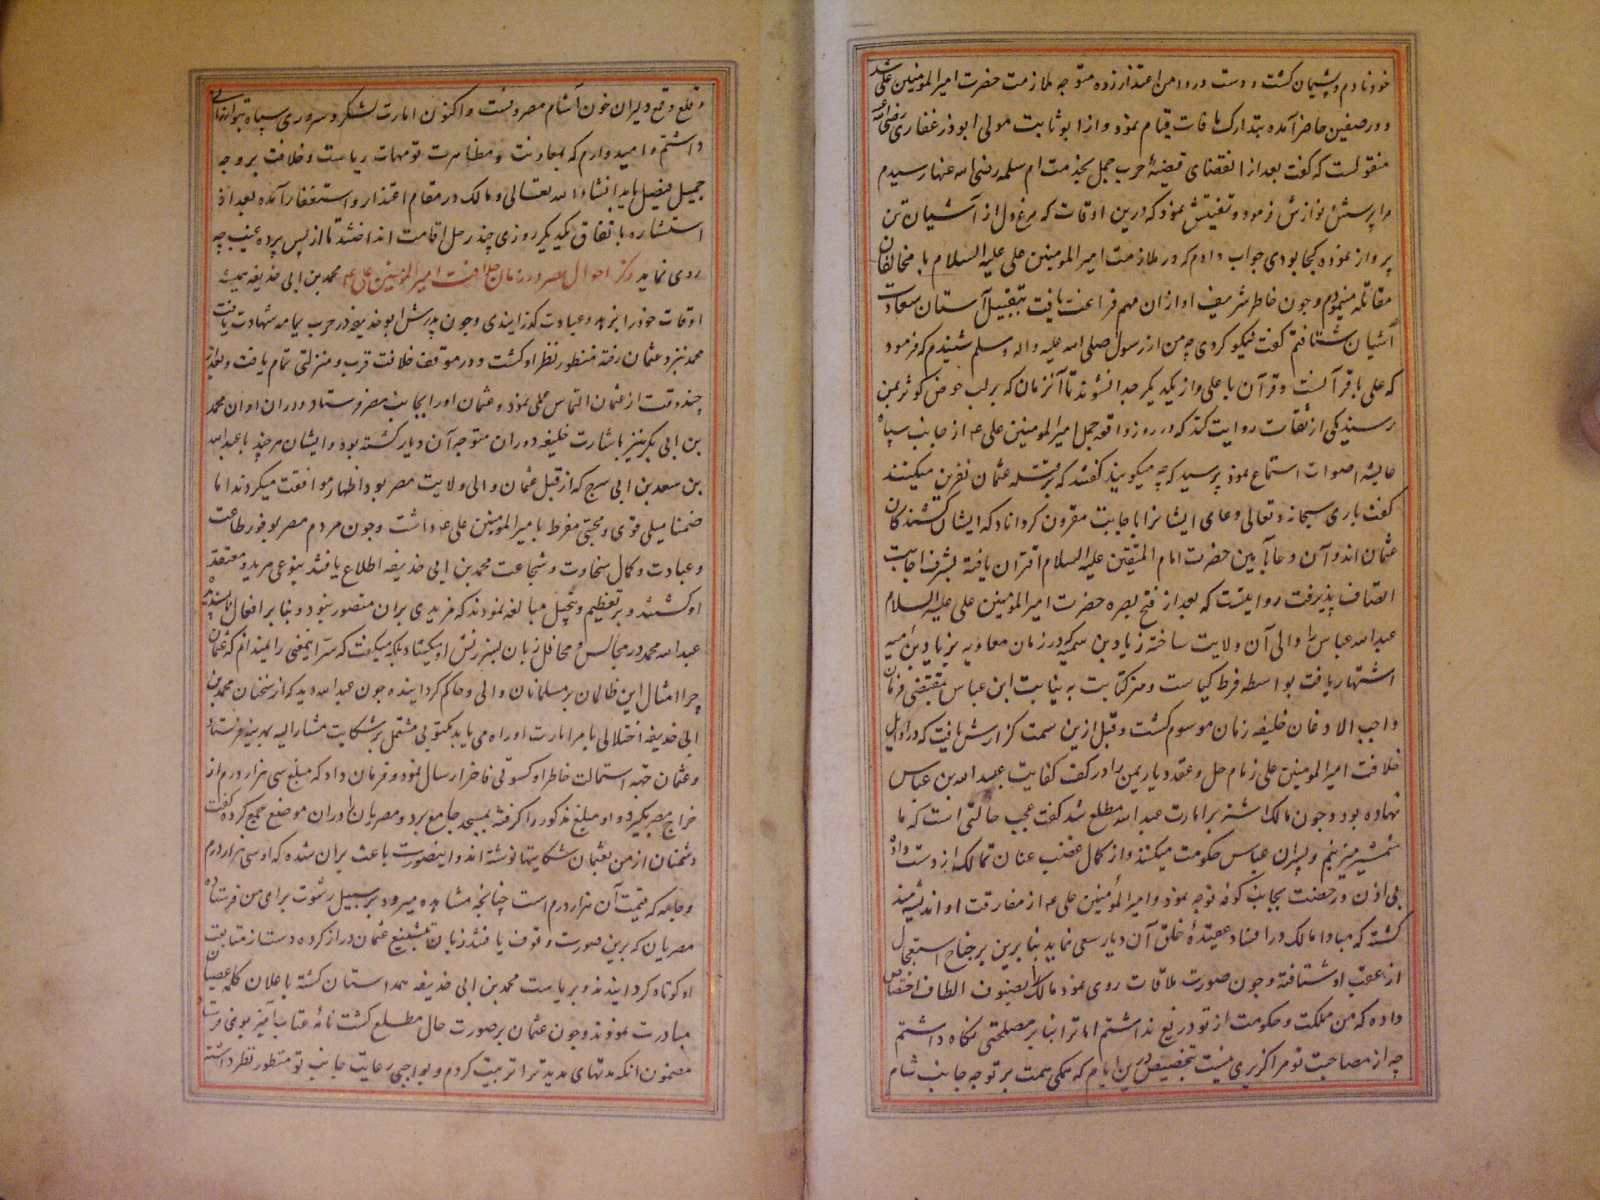 خود نادم و پشیمان کشت و دست در دامن اعتذار زده متوجه ملازمت حضرت امیرالمومنین علی شد
و در صفین حاضر آمده بتدارک مافات قیام نمود و از ابو ثابت مولی ابوذر غفاری رضی الله عنه
منقولست که کفت بعد از انقضای قضیهٔ حرب جمل بخدمت ام سلمه رضی الله عنها رسیدم
مرا پرسش و نوازش فرمود و تفتیش نمود که درین اوقات که مرغ دل از آشیان تن
پرواز نموده کجا بودی جواب دادم که در ملازمت امیرالمومنین علی علیه السلام با مخالفان
مقاتله مینمودم و چون خاطر شریف او ازان مهم فراغت یافت بتقبیل آستان سعادت
آشیان شتافتم کفت نیکو کردی چه من از رسول صلی الله علیه واله وسلم شنیدم که فرمود
که علی با قرآنست و قرآن با علی و از یکدیکر جدا نشوند تا آنزمان که بر لب حوض کوثر بمن
رسند یکی از ثقات روایت کند که در روز واقعه جمل امیرالمومنین علی ع از جانب سپاه
عایشه اصوات استماع نمود پرسید که چه میکویند کفتند که بر قتله عثمان نفرین میکنند
کفت باری سبحانه و تعالی دعای ایشانرا باجابت مقرون کرداناد که ایشان کشندکان
عثمان اند و آن دعا بآمین حضرت امام المتقین علیه السلام اقتران یافته بشرف اجابت
اتصاف پذیرفت روایتست که بعد از فتح بصره حضرت امیرالمومنین علی علیه السلام
عبدالله عباس را والی آن ولایت ساخته زیاد بن سمیه که در زمان معاویه بزیاد بن ابیه
اشتهار یافت بواسطه فرط کیاست و هنر کتابت به نیابت ابن عباس بمقتضی فرمان
واجب الاذعان خلیفه زمان موسوم کشت و قبل ازین سمت کزارش یافت که در اوایل
خلافت امیرالمومنین علی زمام حل و عقد دیار یمن را در کف کفایت عبید الله بن عباس
نهاده بود و چون مالک اشتر بر امارت عبدالله مطلع شد کفت عجب حالتی است که ما
شمشیر میزنیم و پسران عباس حکومت میکنند و از کمال غضب عنان تمالک از دست داده
بی اذن و رخصت بجانب کوفه توجه نمود و امیرالمؤمنین علی ع از مفارقت او اندیشه مند
کشته که مبادا مالک در افساد عقیدهٔ خلق آن دیار سعی نماید بنابرین بر جناح استعجال
از عقب او شتافته و چون صورت ملاقات روی نمود مالک را بصنوف الطاف اختصاص
داده که من مملکت و حکومت از تو دریغ نداشتم اما ترا بنابر مصلحتی نکاه داشتم
چه از مصاحبت تو مرا کزیری نیست بتخصیص درین ایام که همکی همت بر توجه جانب شام
و قلع و قمع دلیران خون آشام مصروفست و اکنون امارت لشکر و سروری سپاه بتو ارزانی
داشتم و امیدوارم که بمعاونت و مظاهرت تو مهمات ریاست و خلافت بروجه
جمیل فیصل یابد انشاء الله تعالی و مالک در مقام اعتذار و استغفار آمده بعد از
استشاره باتفاق یکدیکر روزی چند رحل اقامت انداختند تا از پس پرده غیب چه
روی نماید ذکر احوال مصر در زمان خلافت امیرالمومنین علی ع محمد بن ابی حذیفه همیشه
اوقات خود را بزهد و عبادت کذرانیدی و چون پدرش ابو حذیفه در حرب یمامه شهادت یافت
محمد نزد عثمان رفته منظور نظر او کشت و در موقف خلافت قرب و منزلتی تمام یافت و بعد از
چند وقت از عثمان التماس عملی نمود و عثمان اورا بجانب مصر فرستاد و دران اوان محمد
بن ابی بکر نیز باشارت خلیفه دوران متوجه آن دیار کشته بود و ایشان هر چند با عبدالله
بن سعد بن ابی سرح که از قبل عثمان والی ولایت مصر بود اظهار موافقت میکردند اما
ضمنا میلی قوی و محبتی مفرط با میرالمومنین علی ع داشت و چون مردم مصر بوفور طاعت
و عبادت و کمال سخاوت و شجاعت محمد بن ابی حذیفه اطلاع یافتند بنوعی مرید و معتقد
او کشتند و بر تعظیم و تبجیل مبالغه نمودند که مزیدی بران متصور نبود و بنابر افعال ناپسندیده
عبدالله محمد در مجالس و محافل زبان بسرزنش او میکشاد بلکه میکفت که سر اینمعنی را نمیدانم که عثمان
چرا امثال این ظالمان بر مسلمانان والی و حاکم کردانیده چون عبدالله دید که از سخنان محمد بن
ابی حذیفه اختلالی بامر امارت او راه می یابد مکتوبی مشتمل بر شکایت مشارالیه بمدینه فرستاد
و عثمان جهة استمالت خاطر او کسوتی فاخر ارسال نمود و فرمان داد که مبلغ سی هزار درم از
خراج مصر بکیرد و او مبلغ مذکور را کرفته بمسجد جامع برد و مصریان را دران موضع جمع کرده کفت
دشمنان از من بعثمان شکایتها نوشته اند و اینصورت باعث بران شده که او سی هزار درم
و جامه که قیمت آن هزار درم است چنانچه مشاهده میرود بر سبیل رشوت برای من فرستاده
مصریان که برین صورت وقوف یافتند زبان بتشنیع عثمان دراز کرده دست از متابعت
او کوتاه کردانیدند و بریاست محمد بن ابی حذیفه همداستان کشته باعلان کلمه عصیان
مبادرت نمودند و چون عثمان بر صورت حال مطلع کشت نامهٔ عتاب آمیز بوی فرستاد
مضمون آنکه مدتهای مدید ترا تربیت کردم و بواجبی رعایت جانب تو منظور نظر داشته